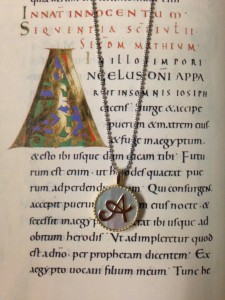 IN NAT INNOCENTUM
SEQUENTIA SCI
SECDM MATHEUM
IN ILLO
ANGELUS DNI APPA
RUIT IN SOMNIS IOSEPH
Surge & accipe
puerum & matrem eius
& fuge aegyptum
& esto ibi usque dum dicam tibi. Futu
rum est enim ut quaerat pue
rum ad perdendum Qui consurgens
accepit & matrem eius nocte &
secessit in & erat ibi usque ad
obitum herodis. Ut adimpleretur quod
est a dno per prophetam dicentem. Ex
aegypto vocavi filium meum. Tunc he
A